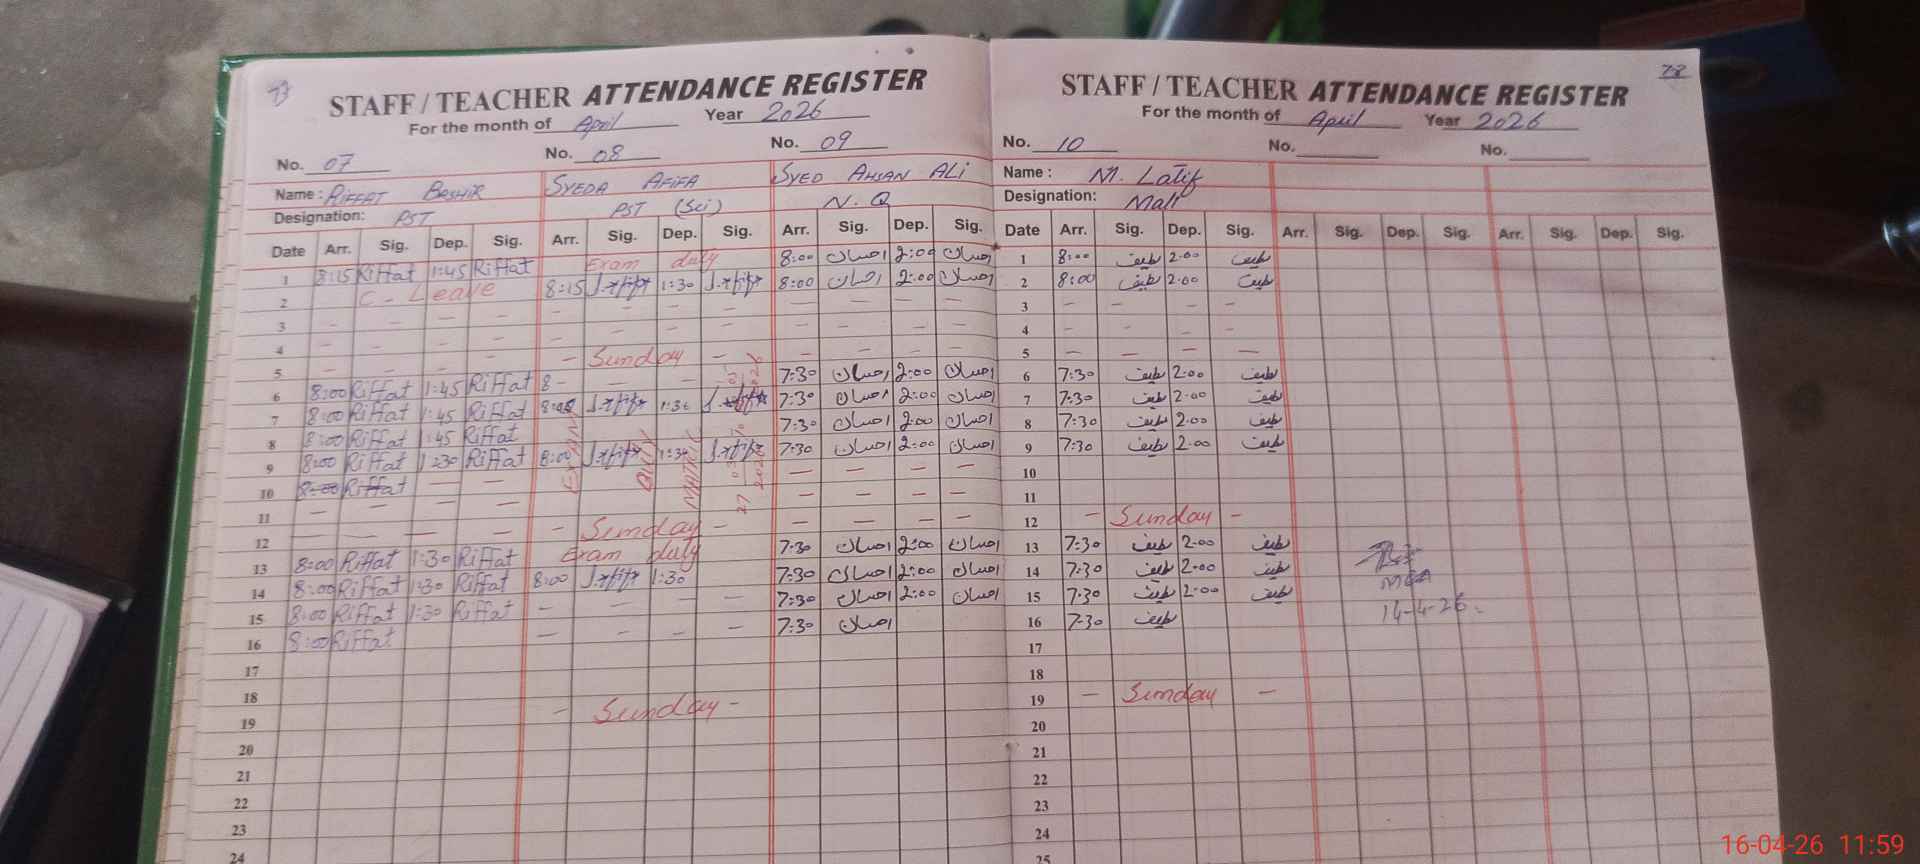 STAFF / TEACHER ATTENDANCE REGISTER
For the month of April Year 2026
No. 07 No. 08 No. 09
Name : RIFFAT BASHIR SYEDA AFIFA SYED AHSAN ALI
Designation: PST PST (Sci) N. Q
Date Arr. Sig. Dep. Sig. Arr. Sig. Dep. Sig. Arr. Sig. Dep. Sig.
1 8:15 Riffat 1:45 Riffat Exam duty 8:00 احسان 2:00 احسان
2 C - Leave 8:15 1:30 8:00 احسان 2:00 احسان
3 - - - - - - - - - - - -
4 - - - - - - - - - - - -
5 - - - - - Sunday - - - - -
6 8:00 Riffat 1:45 Riffat 8 - - - - 7:30 احسان 2:00 احسان
7 8:00 Riffat 1:45 Riffat 8:00 1:30 7:30 احسان 2:00 احسان
8 8:00 Riffat 1:45 Riffat 7:30 احسان 2:00 احسان
9 8:00 Riffat 1:30 Riffat 8:00 1:30 7:30 احسان 2:00 احسان
10 8:00 Riffat - - - - - -
11 - - - - - - - -
12 - - - - - Sunday - - - - -
13 8:00 Riffat 1:30 Riffat Exam duty 7:30 احسان 2:00 احسان
14 8:00 Riffat 1:30 Riffat 8:00 1:30 7:30 احسان 2:00 احسان
15 8:00 Riffat 1:30 Riffat - - - - 7:30 احسان 2:00 احسان
16 8:00 Riffat - - - - 7:30 احسان
17
18
19 - Sunday -
20
21
22
23
24
EXAM DUTY MATRIC
27 03 2026
STAFF / TEACHER ATTENDANCE REGISTER
For the month of April Year 2026
No. 10 No. No.
Name : M. Latif
Designation: Mali
Date Arr. Sig. Dep. Sig. Arr. Sig. Dep. Sig. Arr. Sig. Dep. Sig.
1 8:00 لطیف 2:00 لطیف
2 8:00 لطیف 2:00 لطیف
3 - - - -
4 - - - -
5 - - - -
6 7:30 لطیف 2:00 لطیف
7 7:30 لطیف 2:00 لطیف
8 7:30 لطیف 2:00 لطیف
9 7:30 لطیف 2:00 لطیف
10
11
12 - Sunday -
13 7:30 لطیف 2:00 لطیف
14 7:30 لطیف 2:00 لطیف
15 7:30 لطیف 2:00 لطیف
16 7:30 لطیف
17
18
19 - Sunday -
20
21
22
23
24
25
MEA
14-4-26.
16-04-26 11:59